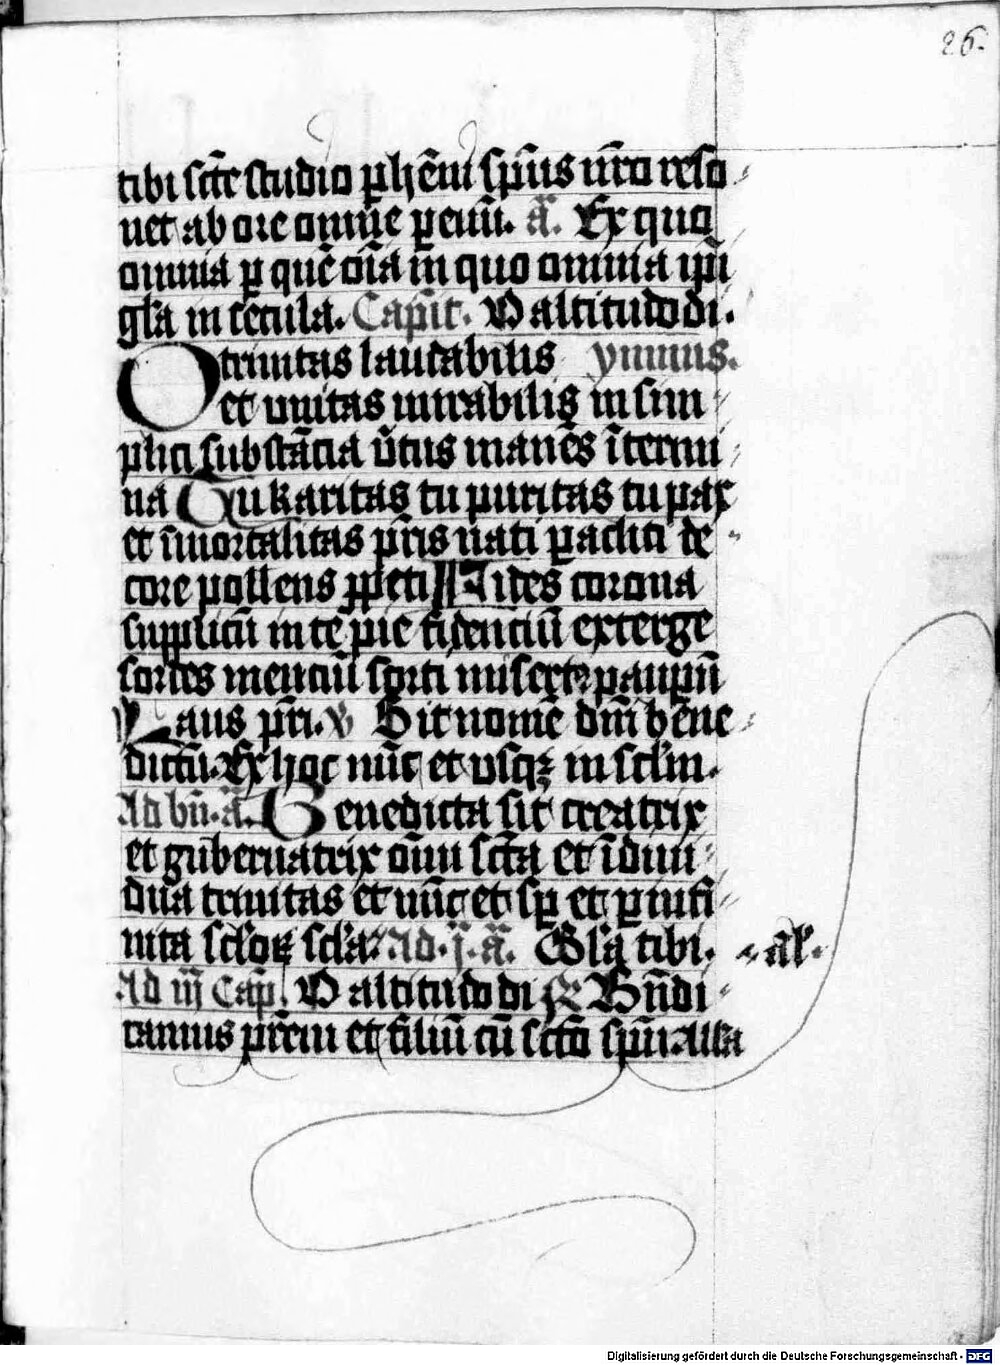 26.
tibi sc̄te studio p̱hēni sp̄us nr̄o reso
net ab ore omne p̱eūū. ā. Ex quo
omnia p̱ quē oīa in quo omnia ip̄i
gl̄a in secula. Capit̄. O altitudo di.
O trinitas laudabilis ymnus.
et unitas mirabilis in sim
plici substācia ūtus manēs īterm̄i
na Tu karitas tu puritas tu pax
et īmortalitas pr̄is nati p̱acliti de
core pollens p̱peti Fides corona
supplicū in te pie fidenciū exterge
sordes menciū sorti misere paup̱ū
Laus pr̄i. v̄ Sit nomē dn̄i bēne
dictū. Ex hoc nūc et usqꝫ in sc̄lm.
Ad bn̄. ā. Benedicta sit creatrix
et gūbernatrix oīm sc̄ta et īdiui
dua trinitas et nūc et sp̱ et p̱ infi
nita sc̄loꝝ sc̄la. Ad. j. ā. Gl̄a tibi. al̄.
Ad iij Cap̄. O altitudo di ℟ Bn̄di
camus pr̄em et filiū cū sc̄to sp̄u. All̄a
Digitalisierung gefördert durch die Deutsche Forschungsgemeinschaft - DFG